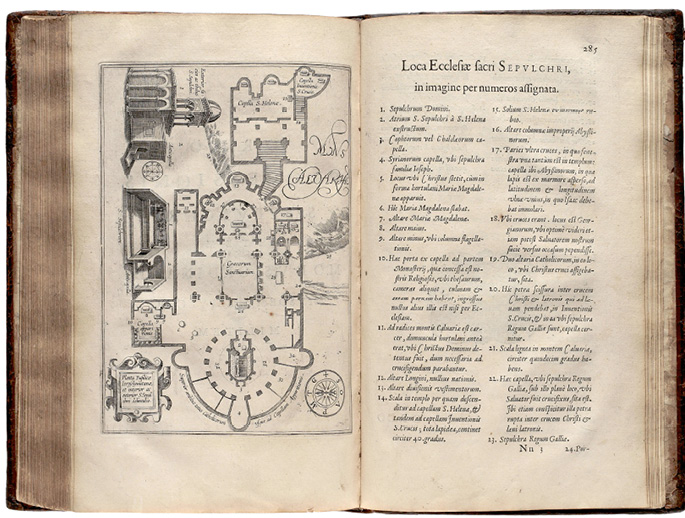 Capella S. Helenæ
Capella
Inuentionis
S. Crucis
MONS
CALVARIÆ
Græcorum
Sanctuarium
Capella
285
Loca Ecclesiæ sacri SEPVLCHRI,
in imagine per numeros assignata.
1. Sepulchrum Domini.
2. Atrium S. Sepulchri à S. Helena
exstructum.
3. Cophtorum vel Chaldæorum ca-
pella.
4. Syrianorum capella, vbi sepulchra
familiæ Ioseph.
5. Locus vbi Christus stetit, cùm in
forma hortulani Mariæ Magdale-
næ apparuit.
6. Hîc Maria Magdalena stabat.
7. Altare Mariæ Magdalenæ.
8. Altare maius.
9. Altare minus, vbi columna flagella-
tionis.
10. Hæc porta ex capella ad partem
Monasterij, quæ concessa est no-
stris Religiosis, vbi thesaurum,
cameras aliquot, culinam &
habent, ingressus
nullus alius illa est nisi per Ec-
clesiam.
11. Ad radices montis Caluariæ est car-
cer, domuncula hortulani anteà
erat, vbi Christus Dominus de-
tentus fuit, dum necessaria ad
crucifigendum parabantur.
12. Altare Longini, nullius nationis.
13. Altare diuisionis vestimentorum.
14. Scala in templo per quam descen-
ditur ad capellam S. Helenæ, &
tandem ad capellam Inuentionis
S. Crucis; tota lapidea, continet
circiter 40. gradus.
15. Solium S. Helenæ
16. Altare columnæ improperij Abyssi-
norum.
17. Paries vltra cruces, in quo fene-
stra vna tantùm est in templum:
capella ibi Abyssinorum, in qua
lapis est ex marmore asperso, ad
latitudinem & longitudinem
vlnæ vnius, in quo Isaac debe-
bat immolari.
18. Vbi cruces erant. locus est Geor-
gianorum, vbi optimè videri et-
iam potest Saluatorem nostrum
fuisse versus occasum pependisse.
19. Duo altaria Catholicorum, in eo lo-
co, vbi Christus cruci affigeba-
tur, sita.
20. Hîc petræ scissura inter crucem
Christi & latronis qui ad læ-
uam pendebat, in Inuentionis
S. Crucis, & in æ vbi sepulchra
Regum Galliæ sunt, capella cer-
nitur.
21. Scala lignea in montem Caluariæ,
circiter quindecim gradus ha-
bens.
22. Hæc capella, vbi sepulchra Regum
Galliæ, sub illo planè loco, vbi
Saluator fuit crucifixus, sita est.
Ibi etiam conspicitur illa petra
rupta inter crucem Christi &
læui latronis.
23. Sepulchra Regum Galliæ.
Nn 3
24. Por-